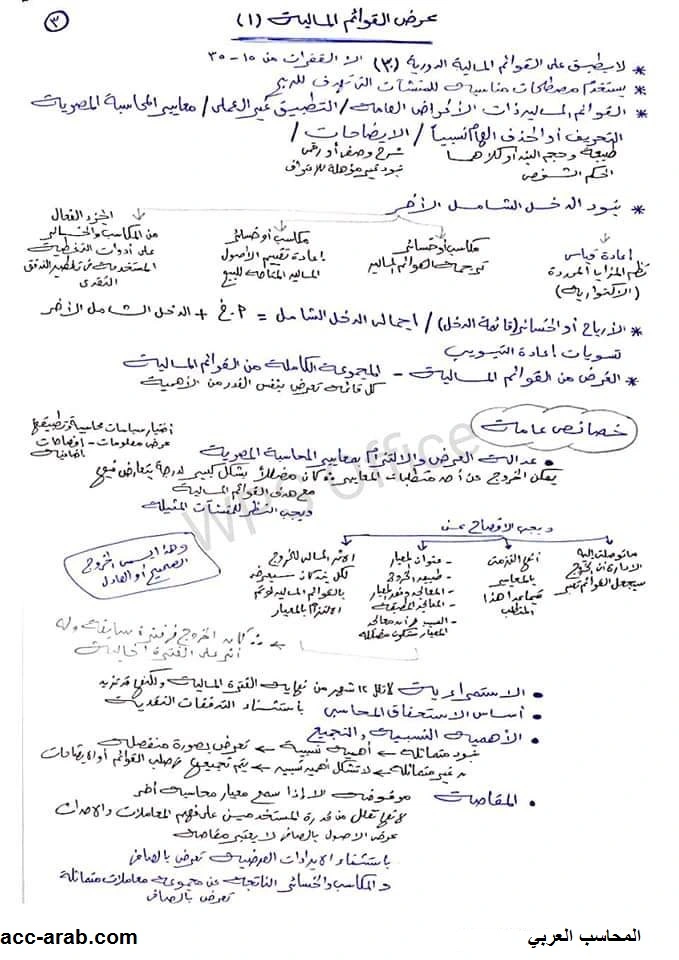 ٣
عرض القوائم المالية (١)
* لا يطبق على القوائم المالية الدورية (٣٠) إلا الفقرات من ١٥ - ٣٥
* يستخدم مصطلحات مناسبة للمنشآت التي تهدف للربح
* القوائم المالية ذات الأغراض العامة / التطبيق غير العملى / معايير المحاسبة المصرية
التحريف أو الحذف الهام نسبياً / الايضاحات /
طبيعة وحجم البند أو كلاهما
الحكم الشخصى
شرح وصفى أو رقمى
بنود غير مؤهلة للاعتراف
* بنود الدخل الشامل الأخر
إعادة قياس
نظم المزايا المحددة
(الاكتوارية)
مكاسب أو خسائر
ترجمة القوائم المالية
مكاسب أو خسائر
إعادة تقييم الأصول
المالية المتاحة للبيع
الجزء الفعال
من المكاسب والخسائر
على أدوات التغطية
المستخدمة فى تغطية التدفق
النقدى
* الأرباح أو الخسائر (قائمة الدخل) / اجمالى الدخل الشامل = أ.خ + الدخل الشامل الأخر
تسويات إعادة التبويب
* الغرض من القوائم المالية - المجموعة الكاملة من القوائم المالية
كل قائمة تعرض بنفس القدر من الأهمية
خصائص عامة
اختيار سياسات محاسبية وتطبيقها
عرض معلومات - افصاحات
اضافية
• عدالة العرض والالتزام بمعايير المحاسبة المصرية
يمكن الخروج عن أحد متطلبات المعايير ∵ كان مضللاً بشكل كبير لدرجة يتعارض فيها
مع هدف القوائم المالية
ويجب النظر للمنشآت المثيلة
ويجب الافصاح عن
ما توصلت إليه
الادارة أن الخروج
سيجعل القوائم تعبر
أنها التزمت
بالمعايير
فيما عدا هذا
المتطلب
- عنوان المعيار
- طبيعة الخروج
- المعالجة وفق المعيار
- المعالجة المطبقة
- السبب فى أن معالجة
المعيار ستكون مضللة
الأثر المالى للخروج
لكل بند كان سيعرض
بالقوائم المالية لو تم
الالتزام بالمعيار
وهذا يسمى الخروج
الصحيح أو العادل
∵ كان الخروج فى فترة سابقة وله
أثر على الفترة الحالية
• الاستمرارية لا تقل ١٢ شهر من نهاية الفترة المالية ولكنها قد تزيد
• أساس الاستحقاق المحاسبى باستثناء التدفقات النقدية
• الأهمية النسبية والتجميع
بنود متماثلة ← أهمية نسبية ← تعرض بصورة منفصلة
" غير متماثلة ← لا تشكل أهمية نسبية ← يتم تجميعها فى صلب القوائم أو الايضاحات
• المقاصة مرفوضة إلا إذا سمح معيار محاسبة أخر
لأنها تقلل من قدرة المستخدمين على فهم المعاملات والأحداث
عرض الأصول بالصافى لا يعتبر مقاصة
باستثناء الايرادات العرضية تعرض بالصافى
والمكاسب والخسائر الناتجة عن مجموعة معاملات متماثلة
تعرض بالصافى
WPS Office
acc-arab.com
المحاسب العربي